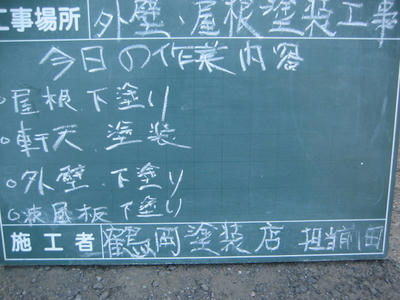 工事場所 外壁、屋根塗装工事
今日の作業内容
○屋根下塗り
○軒天 塗装
○外壁 下塗り
○波風板 下塗り
施工者 鶴岡塗装店 担当前田